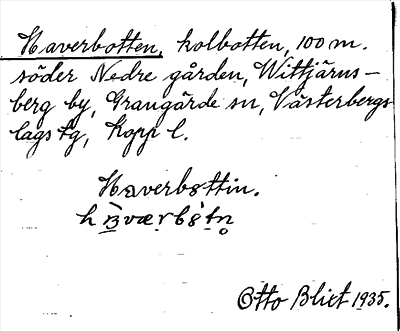 Haverbotten, kolbotten, 100 m.
söder Nedre gården, Wittjärns-
berg by, Grangärde sn, Västerbergs
lags tg, Kopp l.
Haverbottin.
Otto Blixt 1935.